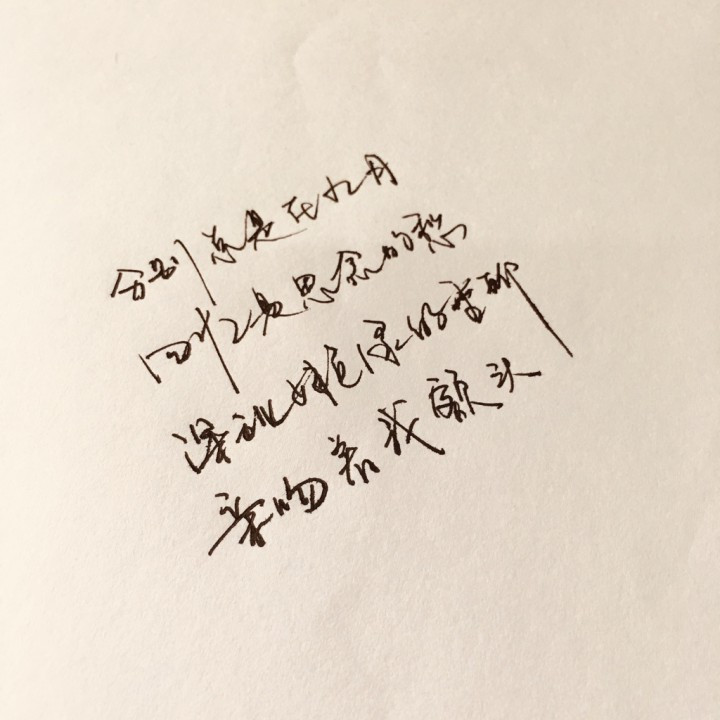 分别总是在九月
回忆是思念的愁
深秋嫩绿的垂柳
亲吻着我额头